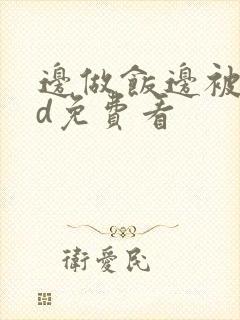 邊做飯邊被
d免費看
衛愛民